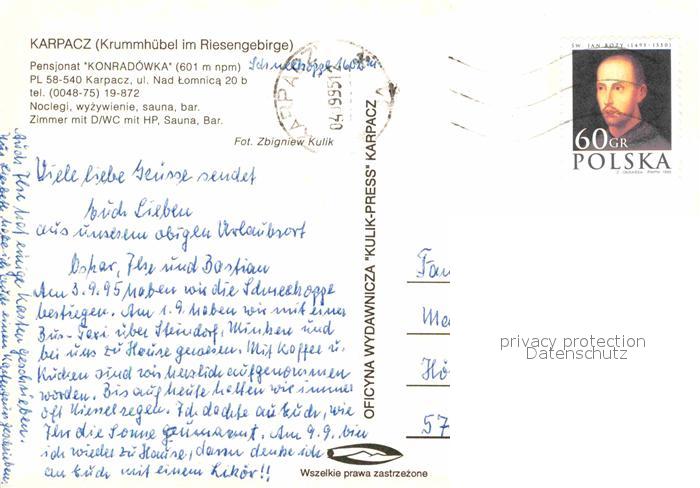 KARPACZ (Krummhübel im Riesengebirge)
Pensjonat "KONRADÓWKA" (601 m npm)
PL 58-540 Karpacz, ul. Nad Łomnicą 20 b
tel. (0048-75) 19-872
Noclegi, wyżywienie, sauna, bar.
Zimmer mit D/WC mit HP, Sauna, Bar.
Fot. Zbigniew Kulik
Schneekoppe 1602 m
Viele liebe Grüsse sendet
Euch Lieben
aus unserem obigen Urlaubsort
Oskar, Ilse und Bastian
Am 3.9.95 haben wir die Schneekoppe
bestiegen. Am 1.9. haben wir mit einer
Bus-Taxi über Steindorf, Minken und
bei uns zu Hause gewesen. Mit Kaffee u.
Kuchen sind wir herzlich aufgenommen
worden. Bis auf heute hatten wir immer
oft Nieselregen. Ich dachte an Euch, wie
Ihr die Sonne Am 9.9. bin
ich wieder zu Hause, dann denke ich
an Euch mit einem Likör!!
Auch Ilse hat einige Karten geschrieben.
OFICYNA WYDAWNICZA "KULIK-PRESS" KARPACZ
Wszelkie prawa zastrzeżone
KARPACZ
04.09.95
ŚW. JAN BOŻY (1495-1550)
60 GR
POLSKA
Fam
Me
Hö
57
privacy protection
Datenschutz